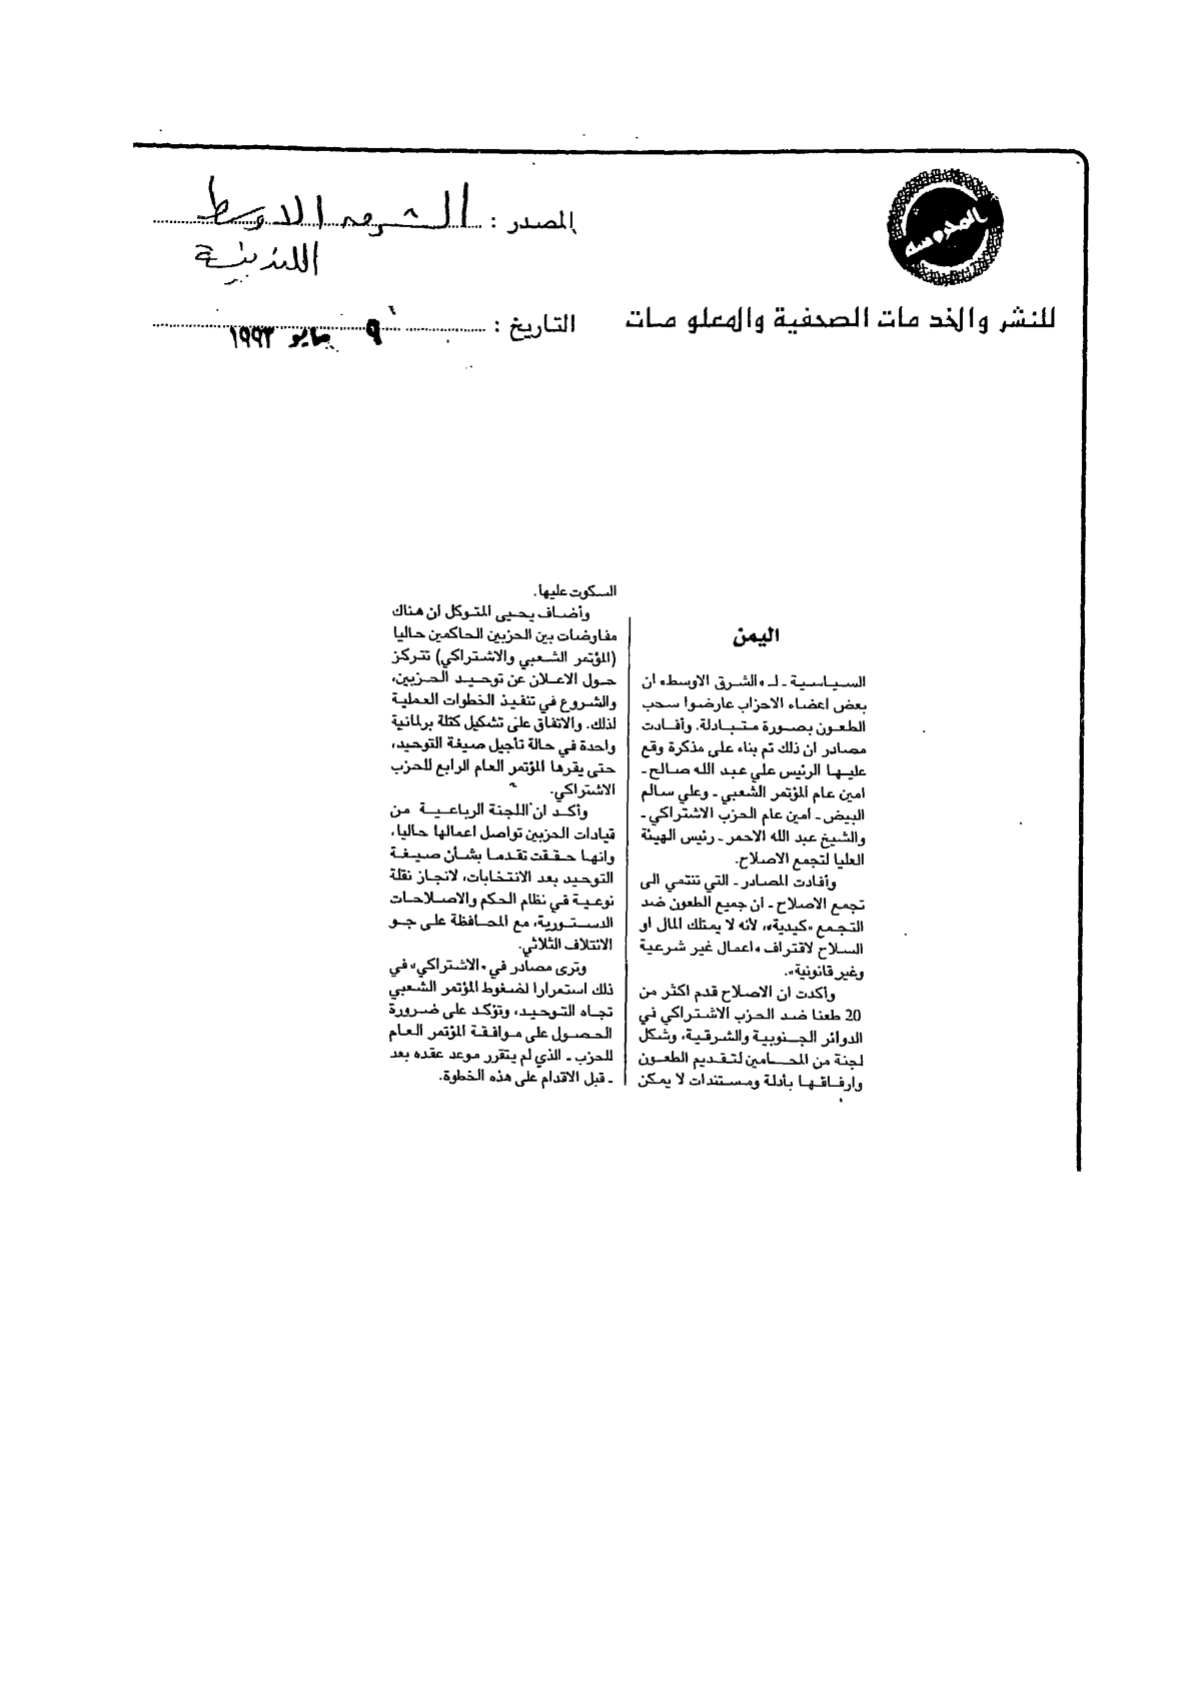 المحروسة
للنشر والخدمات الصحفية والمعلومات
المصدر : الشرق الاوسط
اللندنية
التاريخ : ٩ مايو ١٩٩٣
اليمن
السياسية ـ لـ «الشرق الاوسط» ان
بعض اعضاء الاحزاب عارضوا سحب
الطعون بصورة متبادلة. وأفادت
مصادر ان ذلك تم بناء على مذكرة وقع
عليها الرئيس علي عبد الله صالح ـ
امين عام المؤتمر الشعبي ـ وعلي سالم
البيض ـ امين عام الحزب الاشتراكي ـ
والشيخ عبد الله الاحمر ـ رئيس الهيئة
العليا لتجمع الاصلاح.
وأفادت المصادر ـ التي تنتمي الى
تجمع الاصلاح ـ ان جميع الطعون ضد
التجمع «كيدية»، لأنه لا يمتلك المال او
السلاح لاقتراف «اعمال غير شرعية
وغير قانونية».
وأكدت ان الاصلاح قدم اكثر من
20 طعنا ضد الحزب الاشتراكي في
الدوائر الجنوبية والشرقية، وشكل
لجنة من المحامين لتقديم الطعون
وارفاقها بأدلة ومستندات لا يمكن
السكوت عليها.
وأضاف يحيى المتوكل ان هناك
مفاوضات بين الحزبين الحاكمين حاليا
(المؤتمر الشعبي والاشتراكي) تتركز
حول الاعلان عن توحيد الحزبين،
والشروع في تنفيذ الخطوات العملية
لذلك. والاتفاق على تشكيل كتلة برلمانية
واحدة في حالة تأجيل صيغة التوحيد،
حتى يقرها المؤتمر العام الرابع للحزب
الاشتراكي.
وأكد ان اللجنة الرباعية من
قيادات الحزبين تواصل اعمالها حاليا،
وانها حققت تقدما بشأن صيغة
التوحيد بعد الانتخابات، لانجاز نقلة
نوعية في نظام الحكم والاصلاحات
الدستورية، مع المحافظة على جو
الائتلاف الثلاثي.
وترى مصادر في «الاشتراكي» في
ذلك استمرارا لضغوط المؤتمر الشعبي
تجاه التوحيد، وتؤكد على ضرورة
الحصول على موافقة المؤتمر العام
للحزب ـ الذي لم يتقرر موعد عقده بعد
ـ قبل الاقدام على هذه الخطوة.